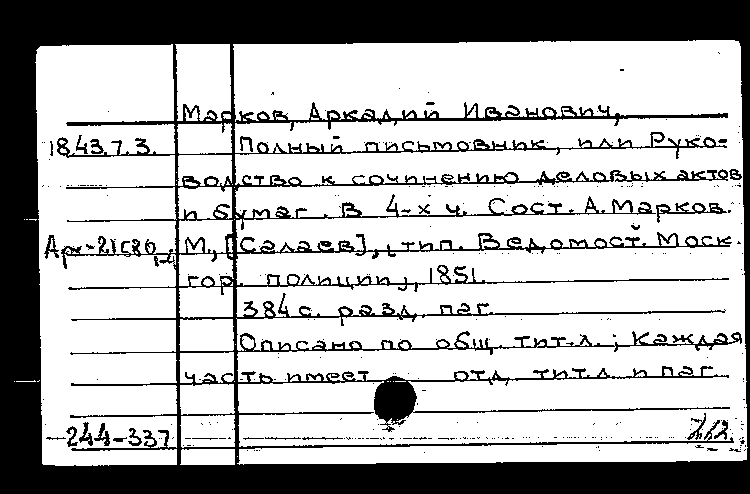 Марков, Аркадий Иванович,
18.43.7.3. Полный письмовник, или Руко-
водство к сочинению деловых актов
и бумаг. В 4-х ч. Сост. А. Марков.
М., [Салаев], (тип. Ведомост. Моск.
гор. полиции), 1851.
384 с. разд. паг.
Описано по общ. тит. л.; Каждая
часть имеет отд. тит. л и паг.
244-337